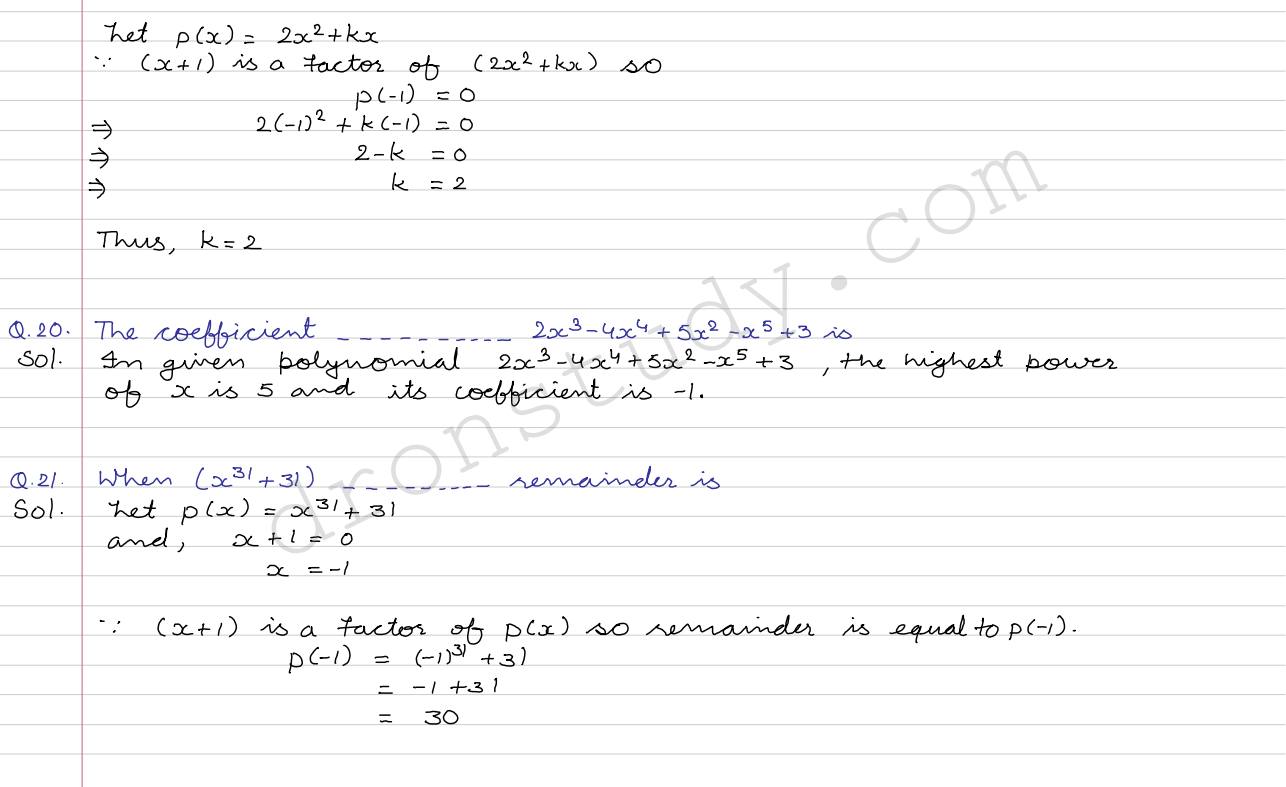 Let p(x) = 2x² + kx
∵ (x+1) is a factor of (2x² + kx) so
p(-1) = 0
⇒ 2(-1)² + k(-1) = 0
⇒ 2-k = 0
⇒ k = 2
Thus, k = 2
Q.20. The coefficient __________ 2x³ - 4x⁴ + 5x² - x⁵ + 3 is
Sol. In given polynomial 2x³ - 4x⁴ + 5x² - x⁵ + 3 , the highest power
of x is 5 and its coefficient is -1.
Q.21. When (x³¹ + 31) __________ remainder is
Sol. Let p(x) = x³¹ + 31
and, x + 1 = 0
x = -1
∵ (x+1) is a factor of p(x) so remainder is equal to p(-1).
p(-1) = (-1)³¹ + 31
= -1 + 31
= 30
dronstudy.com